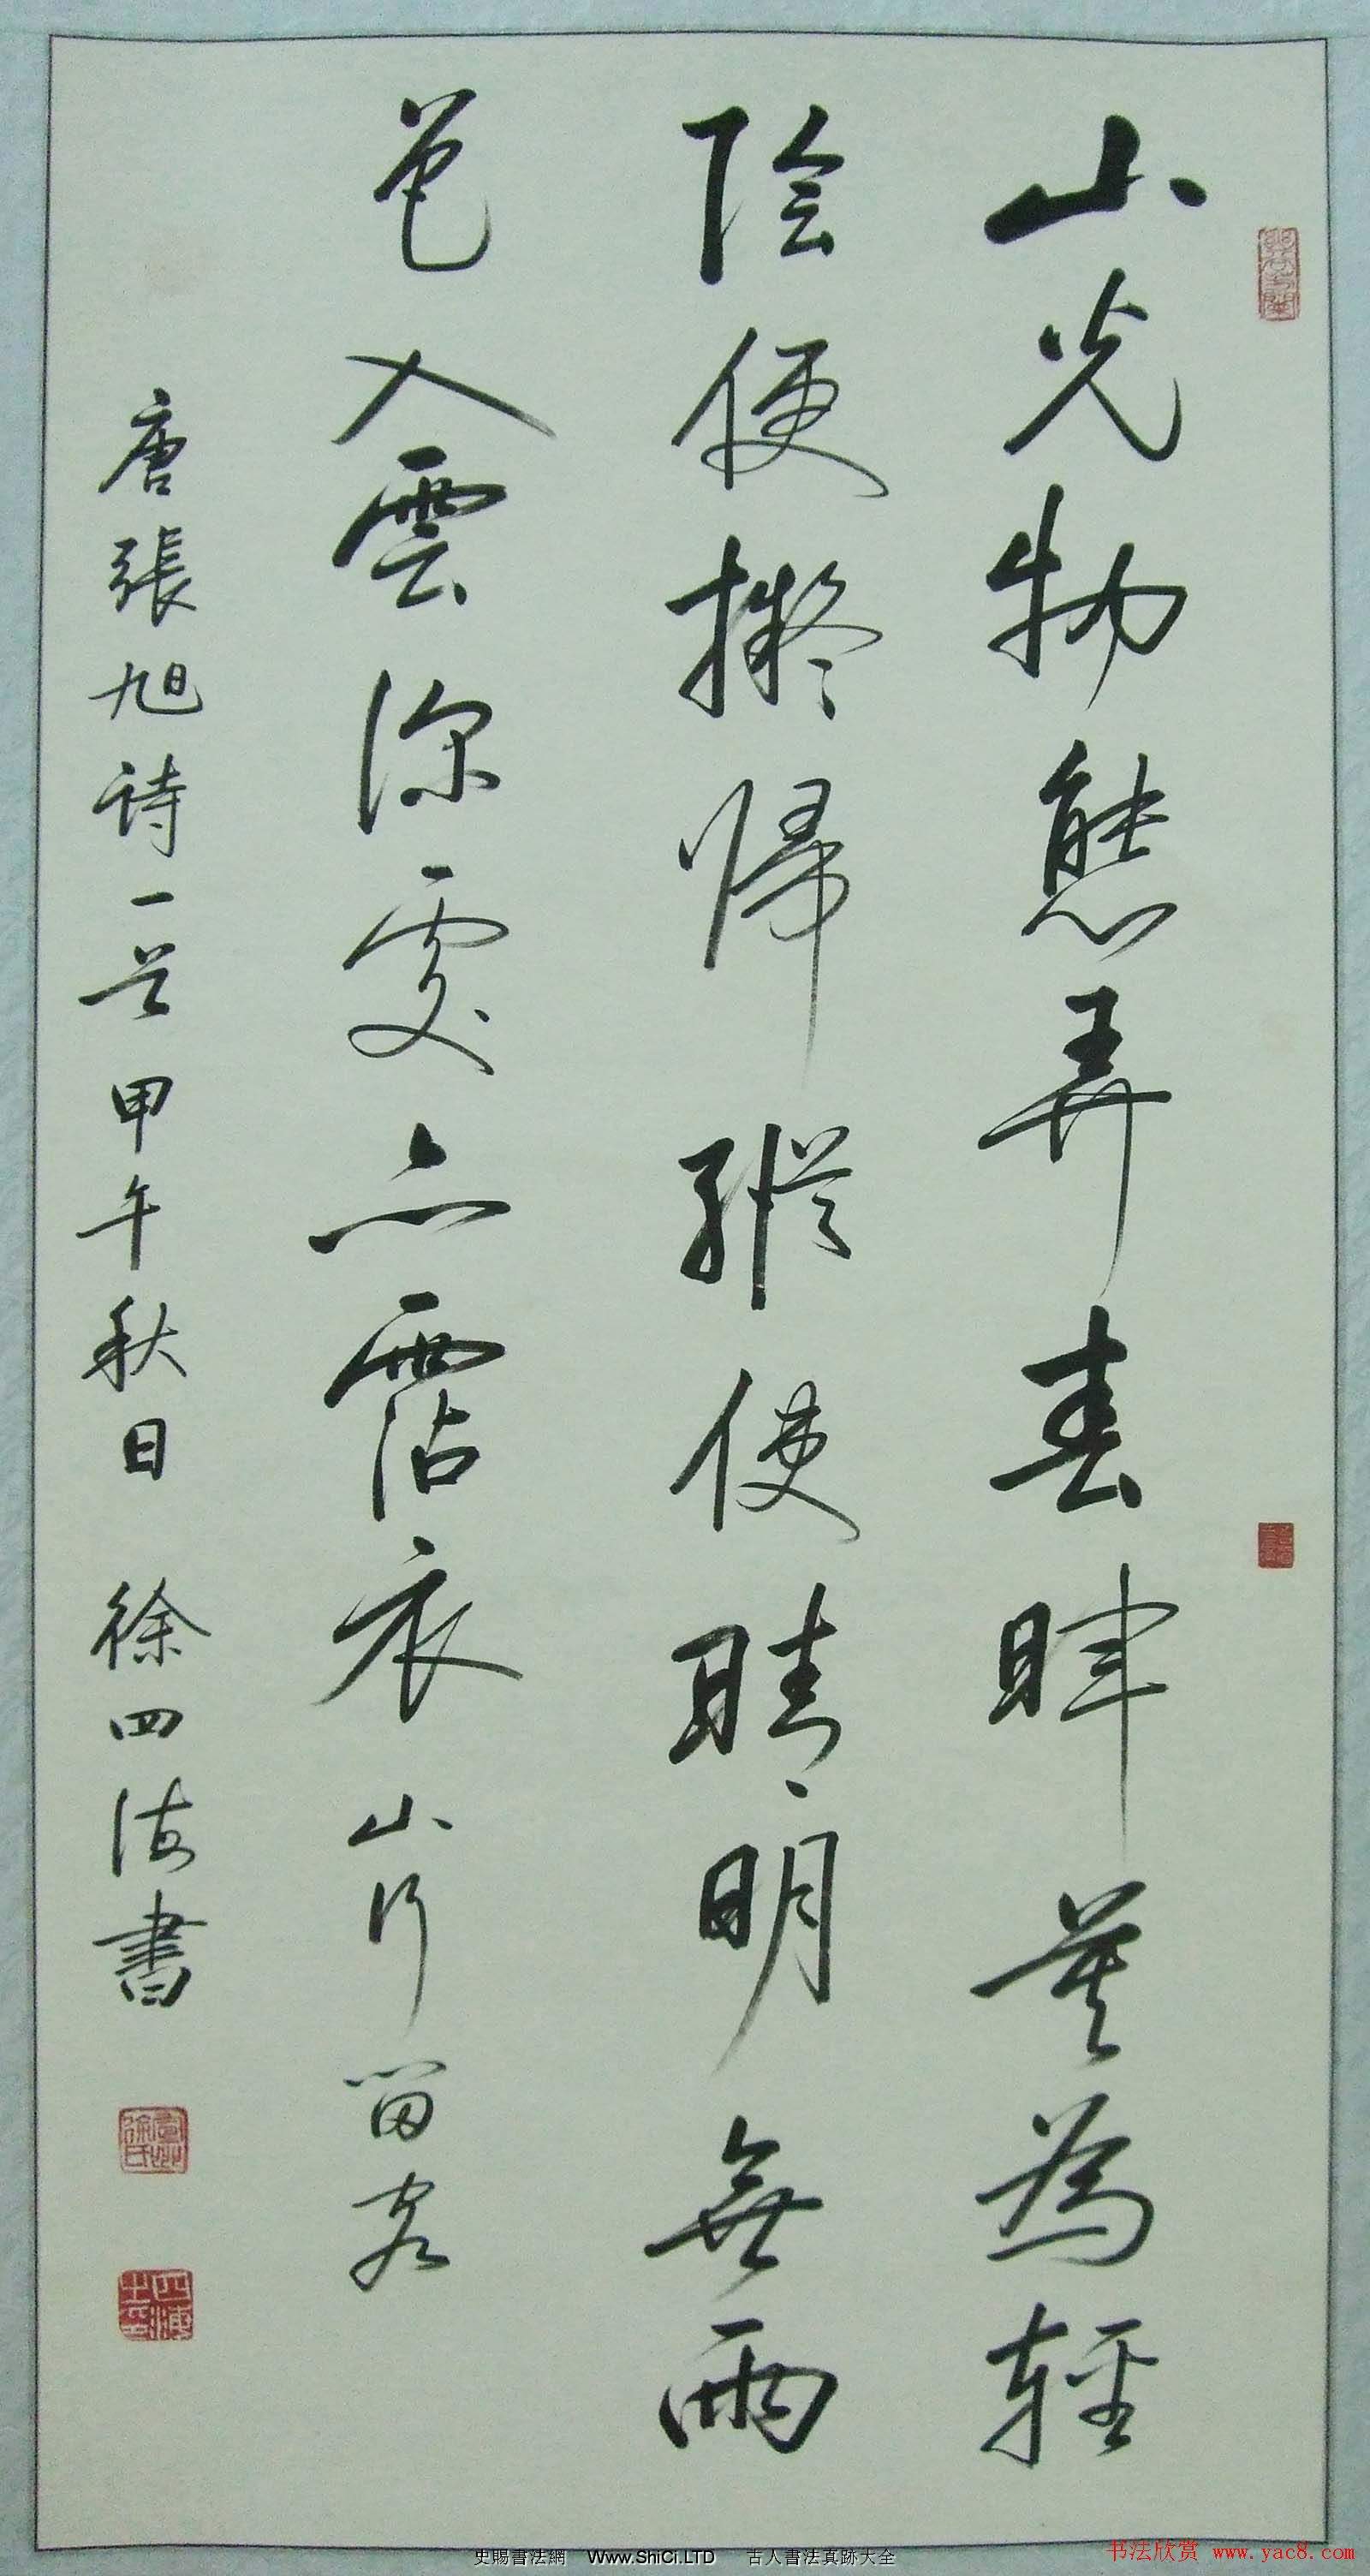 山光物態弄春暉莫為輕
陰便擬歸縱使晴明無雨
色入雲深處亦霑衣 山行留客
唐張旭詩一首甲午秋日 徐四海書
徐氏
書法欣赏 www.yac8.com
史賜書法網 Www.ShiCi.LTD 古人書法真跡大全